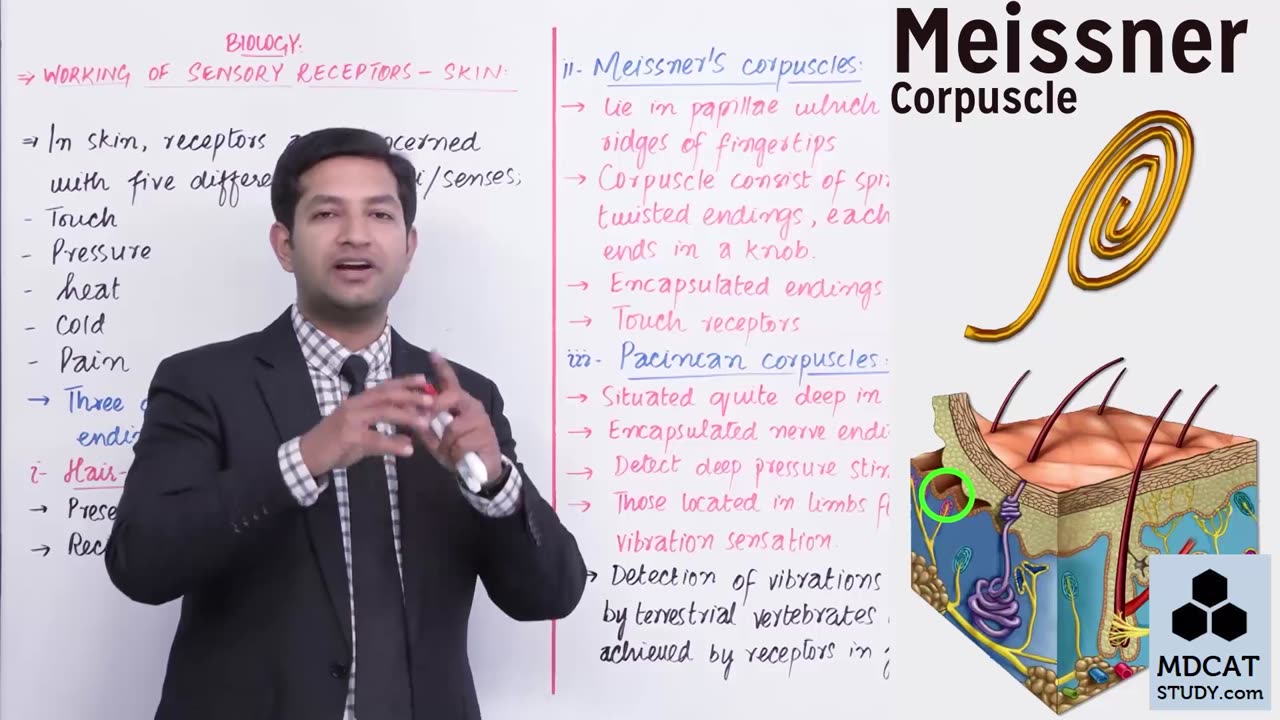 BIOLOGY:
⇒ WORKING OF SENSORY RECEPTORS - SKIN:
⇒ In skin, receptors
with five
- Touch
- Pressure
- heat
- Cold
- Pain
→ Three
i- Hair-
→
→
ii- Meissner's corpuscles:
→ Lie in papillae which
ridges of fingertips
→ Corpuscle consist of
twisted endings, each
ends in a knob.
→ Encapsulated endings
→ Touch receptors
iii- Pacinican corpuscles:
→ Situated quite deep in
→ Encapsulated nerve
→ Detect deep pressure
→ Those located in limbs
vibration sensation.
→ Detection of vibrations
by terrestrial vertebrates
achieved by receptors in
Meissner
Corpuscle
MDCAT
STUDY.com